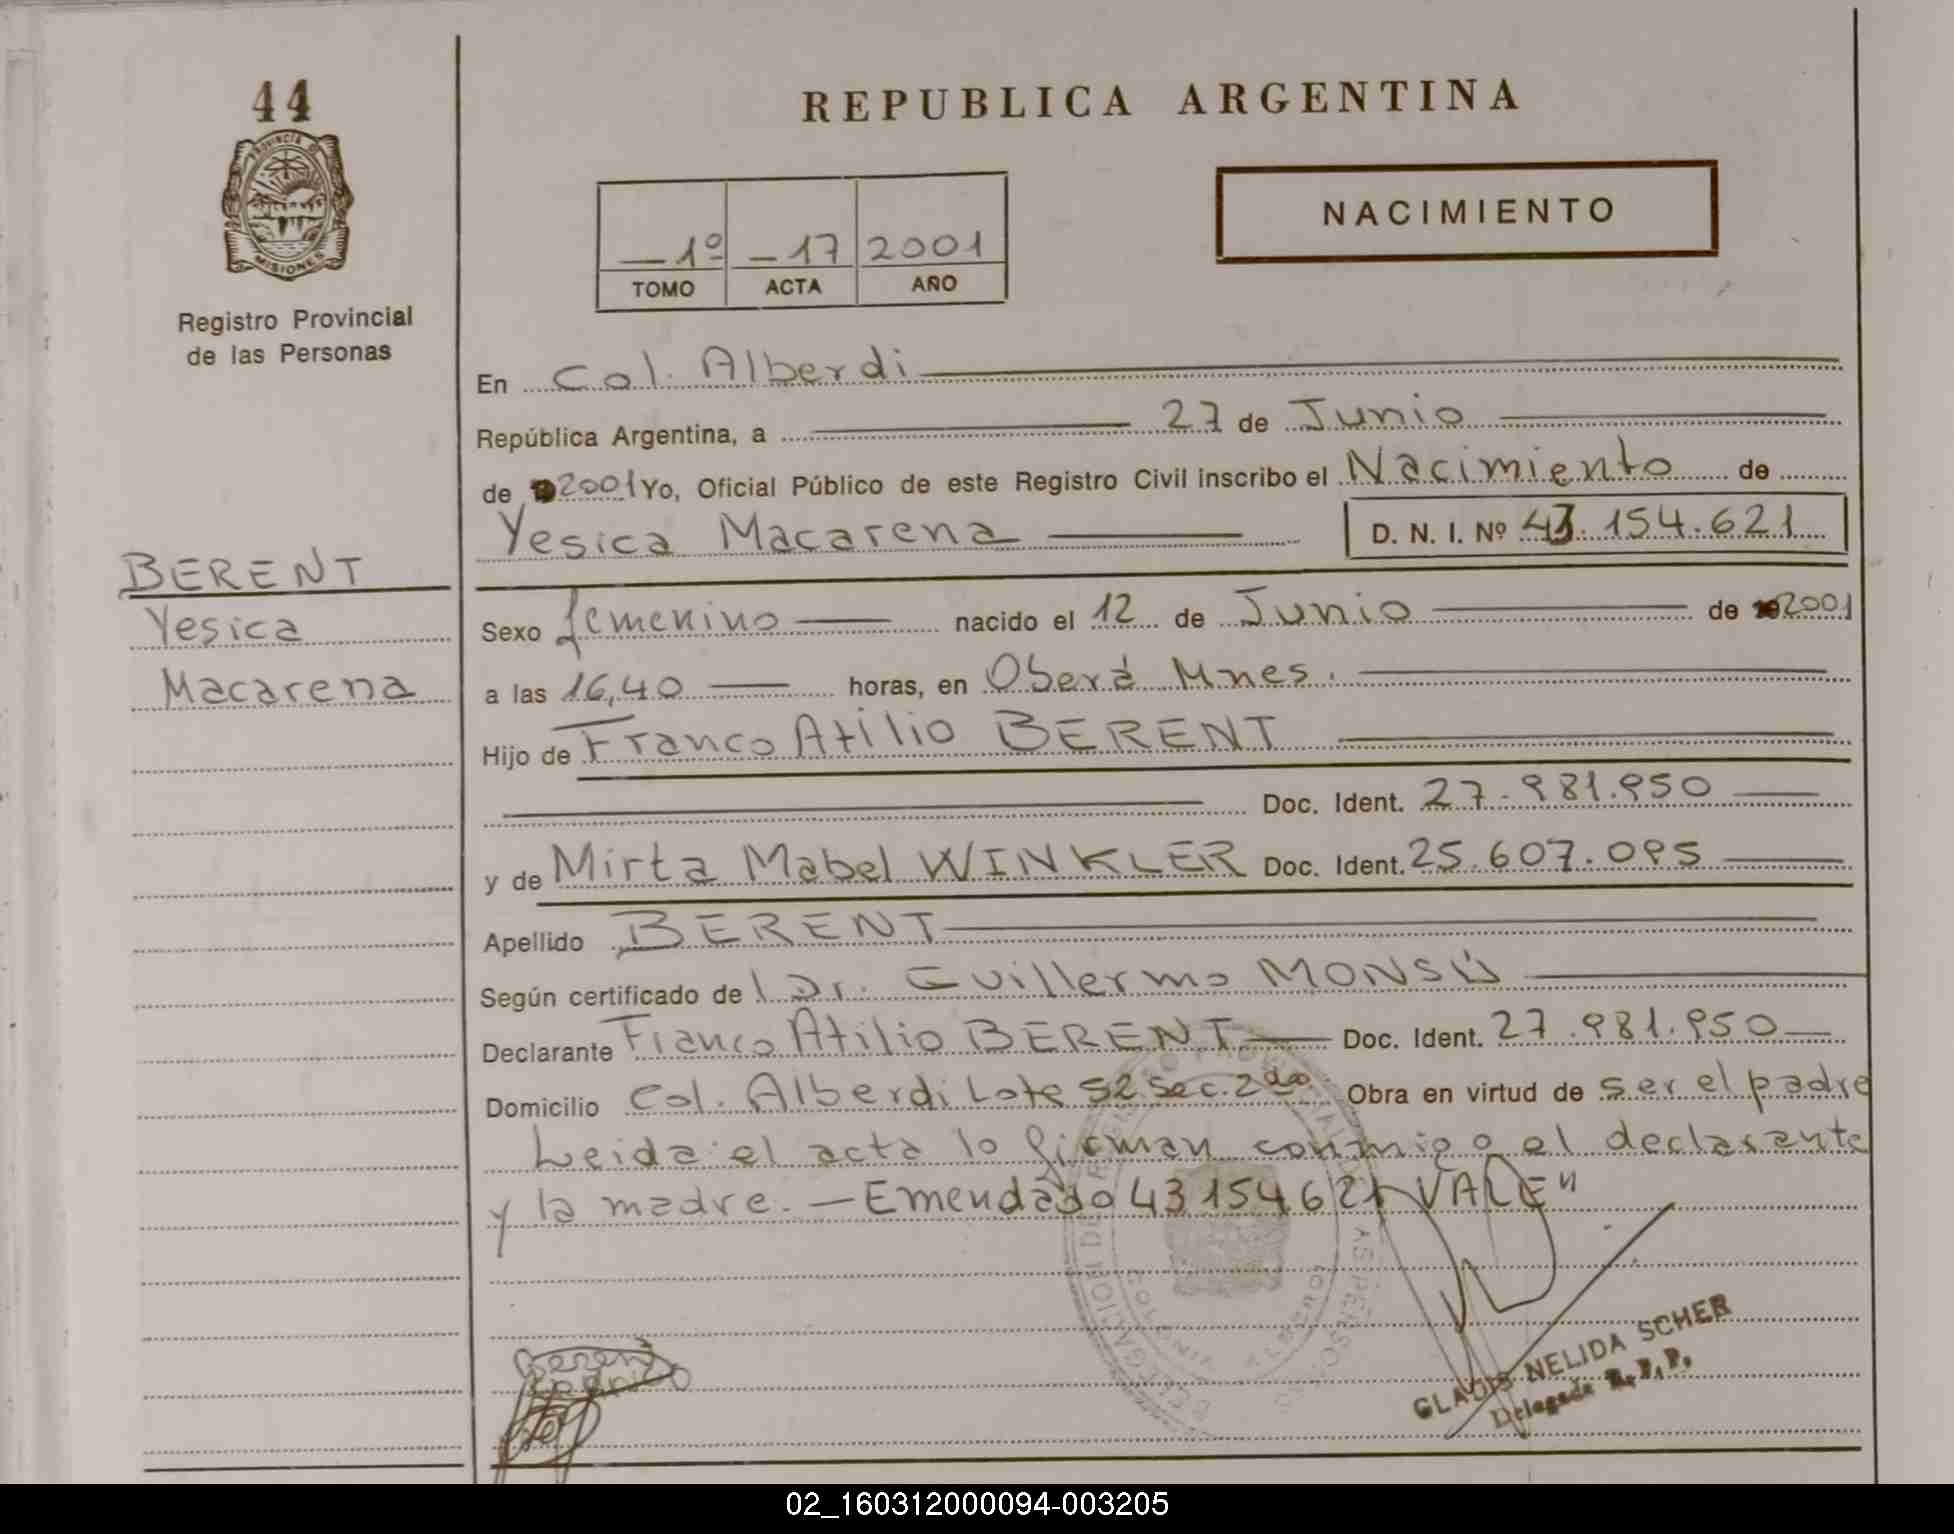 44
PROVINCIA D
MISIONES
Registro Provincial
de las Personas
BERENT
Yesica
Macarena
REPUBLICA ARGENTINA
1º 17 2001
TOMO ACTA AÑO
NACIMIENTO
En Col. Alberdi
República Argentina, a 27 de Junio
de 2001 Yo, Oficial Público de este Registro Civil inscribo el Nacimiento de
Yesica Macarena D. N. I. Nº 43.154.621
Sexo femenino nacido el 12 de Junio de 2001
a las 16,40 horas, en Oberá Mnes.
Hijo de Franco Atilio BERENT
Doc. Ident. 27.981.950
y de Mirta Mabel WINKLER Doc. Ident. 25.607.095
Apellido BERENT
Según certificado de l Dr. Guillermo MONSÚ
Declarante Franco Atilio BERENT Doc. Ident. 27.981.950
Domicilio Col. Alberdi Lote 52 Sec. 2da Obra en virtud de ser el padre
Leida el acta lo firman conmigo el declarante
y la madre. — Emendado 43154621 VALE"
Berent
GLADIS NELIDA SCHER
Delegada R.P.P.
02_160312000094-003205